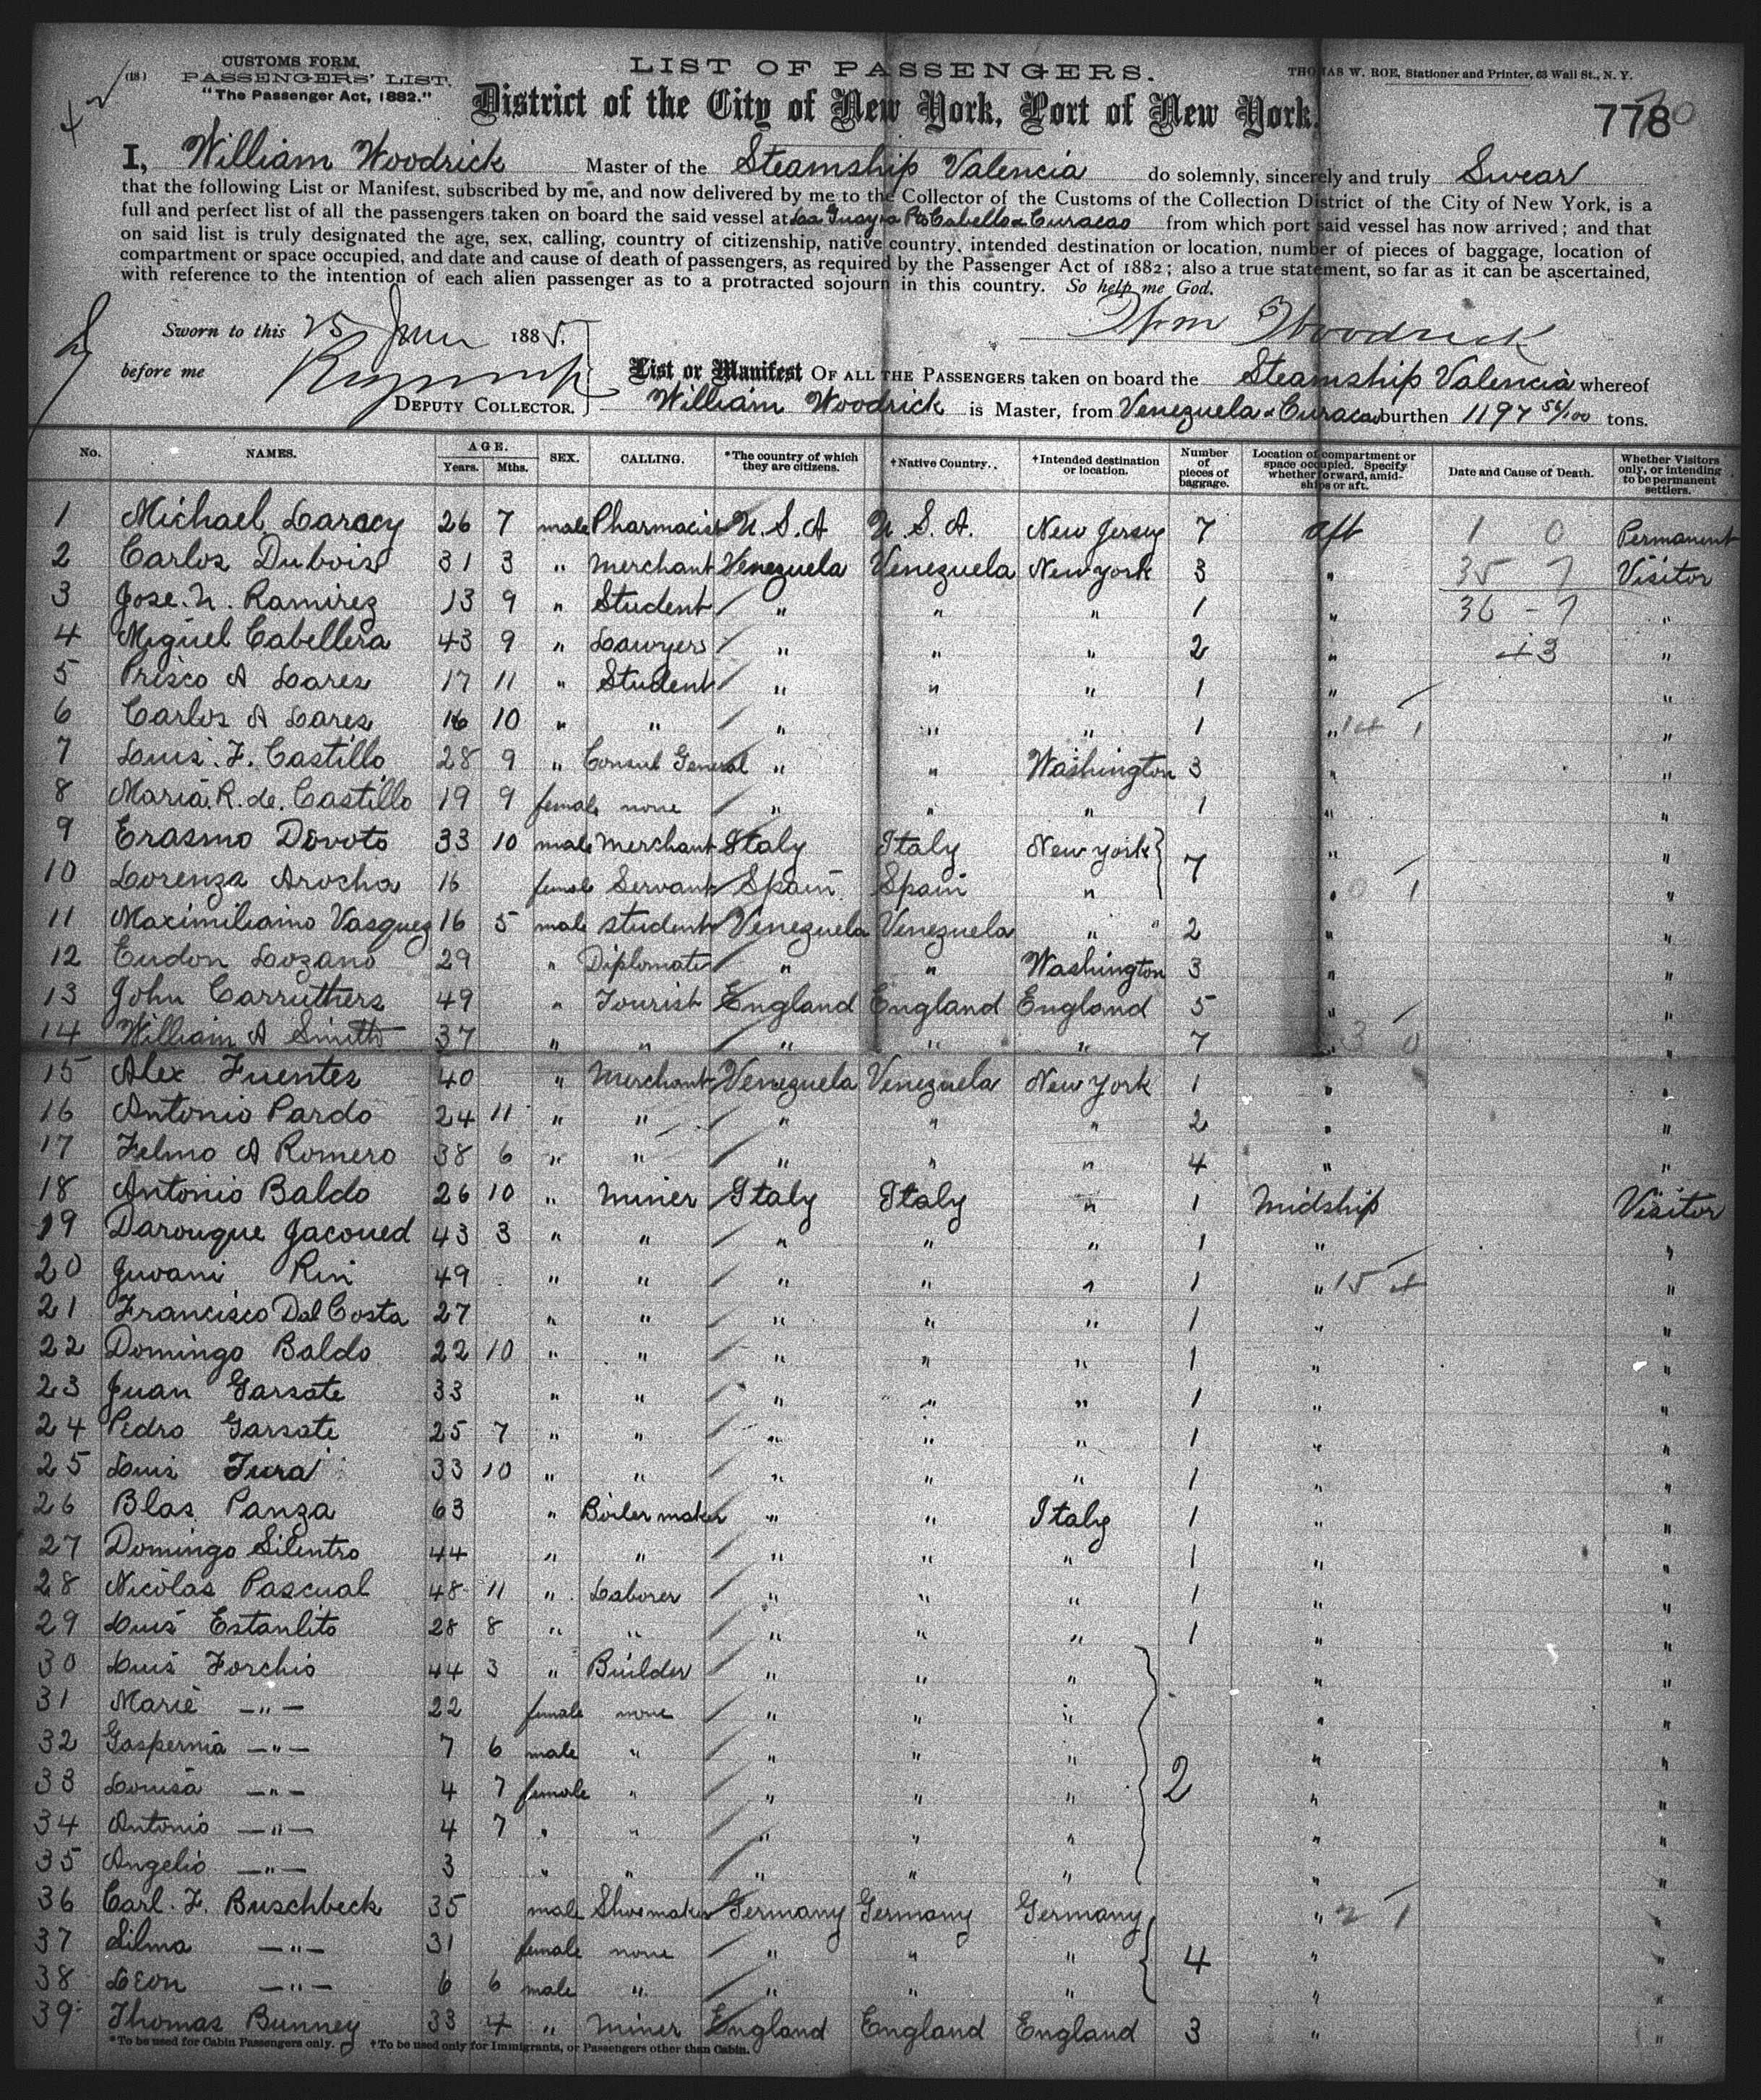 (18) CUSTOMS FORM.
PASSENGERS' LIST.
"The Passenger Act, 1882."
LIST OF PASSENGERS.
THOMAS W. ROE, Stationer and Printer, 63 Wall St., N. Y.
District of the City of New York, Port of New York.
778
I, William Woodrick Master of the Steamship Valencia do solemnly, sincerely and truly Swear
that the following List or Manifest, subscribed by me, and now delivered by me to the Collector of the Customs of the Collection District of the City of New York, is a
full and perfect list of all the passengers taken on board the said vessel at La Guayra Pto Cabello & Curacao from which port said vessel has now arrived; and that
on said list is truly designated the age, sex, calling, country of citizenship, native country, intended destination or location, number of pieces of baggage, location of
compartment or space occupied, and date and cause of death of passengers, as required by the Passenger Act of 1882; also a true statement, so far as it can be ascertained,
with reference to the intention of each alien passenger as to a protracted sojourn in this country. So help me God.
Sworn to this 25 June 1885.
Wm Woodrick
before me
DEPUTY COLLECTOR.
List or Manifest OF ALL THE PASSENGERS taken on board the Steamship Valencia whereof
William Woodrick is Master, from Venezuela & Curacao burthen 1197 56/100 tons.
No. NAMES. AGE. Years. Mths. SEX. CALLING. *The country of which they are citizens. †Native Country. †Intended destination or location. Number of pieces of baggage. Location of compartment or space occupied. Specify whether forward, amidships or aft. Date and Cause of Death. Whether Visitors only, or intending to be permanent settlers.
1 Michael Laracy 26 7 male Pharmacist U.S.A U.S.A. New Jersey 7 aft 1 0 Permanent
2 Carlos Dubois 31 3 " Merchant Venezuela Venezuela New York 3 " 35 7 Visitor
3 Jose. N. Ramirez 13 9 " Student " " " 1 " 36 - 7 "
4 Miguel Cabellera 43 9 " Lawyers " " " 2 " +3 "
5 Prisco A Lares 17 11 " Student " " " 1 " "
6 Carlos A Lares 16 10 " " " " " 1 " 14 1 "
7 Luis. F. Castillo 28 9 " Consul General " " Washington 3 " "
8 Maria. R. de. Castillo 19 9 female none " " " 1 " "
9 Erasmo Devoto 33 10 male Merchant Italy Italy New York } 7 " "
10 Lorenza Arocha 16 female Servant Spain Spain " " 0 1 "
11 Maximiliano Vasquez 16 5 male student Venezuela Venezuela " " 2 " "
12 Eudon Lozano 29 " Diplomate " " Washington 3 " "
13 John Carruthers 49 " Tourist England England England 5 " "
14 William A Smith 37 " " " " " 7 " 3 0 "
15 Alex Fuentes 40 " Merchant Venezuela Venezuela New York 1 " "
16 Antonio Pardo 24 11 " " " " " 2 " "
17 Felmo A Romero 38 6 " " " " " 4 " "
18 Antonio Baldo 26 10 " Miner Italy Italy " 1 Midship Visitor
19 Darouque Jacoued 43 3 " " " " " 1 " "
20 Guvani Rin 49 " " " " " 1 " 15 4 "
21 Francisco Dal Costa 27 " " " " " 1 " "
22 Domingo Baldo 22 10 " " " " " 1 " "
23 Juan Garsate 33 " " " " " 1 " "
24 Pedro Garsate 25 7 " " " " " 1 " "
25 Luis Tura 33 10 " " " " " 1 " "
26 Blas Panza 63 " Boiler maker " " Italy 1 " "
27 Domingo Silentro 44 " " " " " 1 " "
28 Nicolas Pascual 48 11 " Laborer " " " 1 " "
29 Luis Estanlito 28 8 " " " " " 1 " "
30 Luis Forchis 44 3 " Builder " " " " "
31 Marie —"— 22 female none " " " " "
32 Gaspernia —"— 7 6 male " " " " " "
33 Louisa —"— 4 7 female " " " " } 2 " "
34 Antonio —"— 4 7 " " " " " " "
35 Angelio —"— 3 " " " " " " "
36 Carl. F. Buschbeck 35 male Shoemaker Germany Germany Germany " 2 1 "
37 Silma —"— 31 female none " " " } 4 " "
38 Leon —"— 6 6 male " " " " " "
39 Thomas Bunney 33 4 " Miner England England England 3 " "
*To be used for Cabin Passengers only. †To be used only for Immigrants, or Passengers other than Cabin.